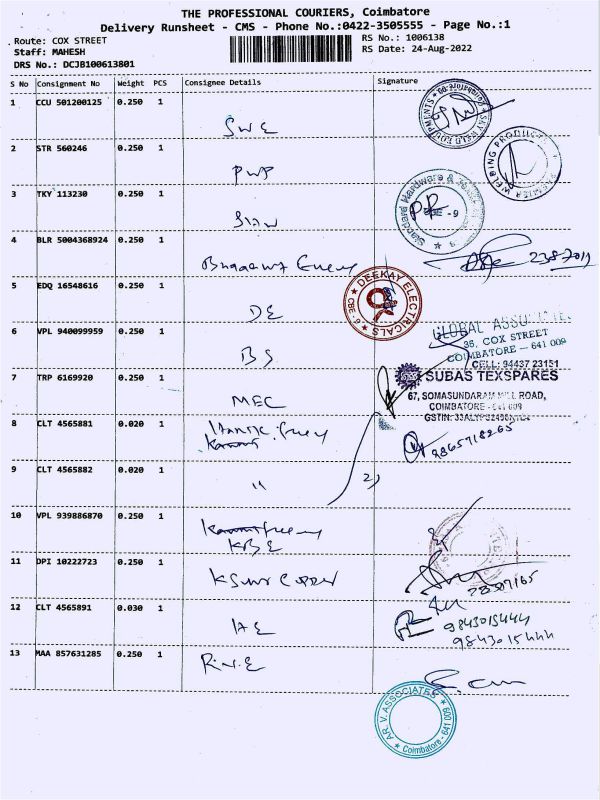 THE PROFESSIONAL COURIERS, Coimbatore
Delivery Runsheet - CMS - Phone No.:0422-3505555 - Page No.:1
Route: COX STREET
RS No.: 1006138
Staff: MAHESH
RS Date: 24-Aug-2022
DRS No.: DCJB100613801
S No Consignment No Weight PCS Consignee Details Signature
1 CCU 501200125 0.250 1
SWE
SKY WELD EQUIPMENTS
2 STR 560246 0.250 1
PWP
PREMIER WELDING PRODUCT
3 TKY 113230 0.250 1
Standard Hardware &
4 BLR 5004368924 0.250 1
5 EDQ 16548616 0.250 1
DE
DEEKAY ELECTRICALS
CBE - 9
6 VPL 940099959 0.250 1
BS
GLOBAL ASSOCIATES
36, COX STREET
COIMBATORE - 641 009
CELL: 94437 23151
7 TRP 6169920 0.250 1
MEC
SUBAS TEXSPARES
67, SOMASUNDARAM MILL ROAD,
COIMBATORE - 641 009
8 CLT 4565881 0.020 1
9865718265
9 CLT 4565882 0.020 1
"
10 VPL 939886870 0.250 1
KBE
11 DPI 10222723 0.250 1
12 CLT 4565891 0.030 1
IAE
9843015444
9843015444
13 MAA 857631285 0.250 1
R.V.E
AR. V. ASSOCIATES
Coimbatore - 641 009